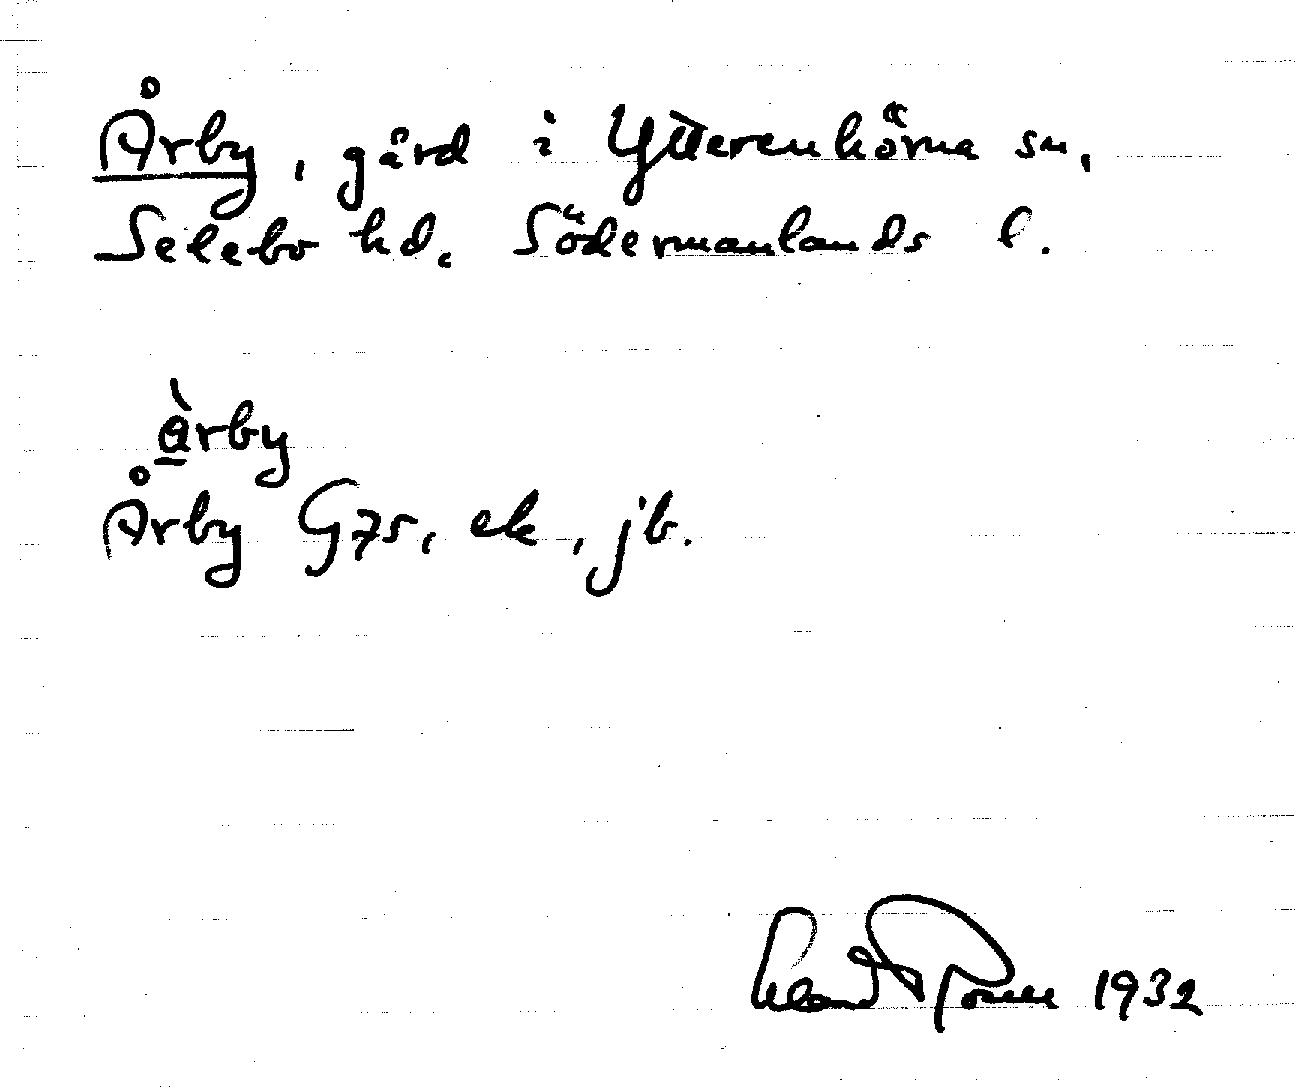 Årby, gård i Ytterenhörna sn,
Selebo hd. Södermanlands l.
àrby
Årby G7s, ek, jb.
1932